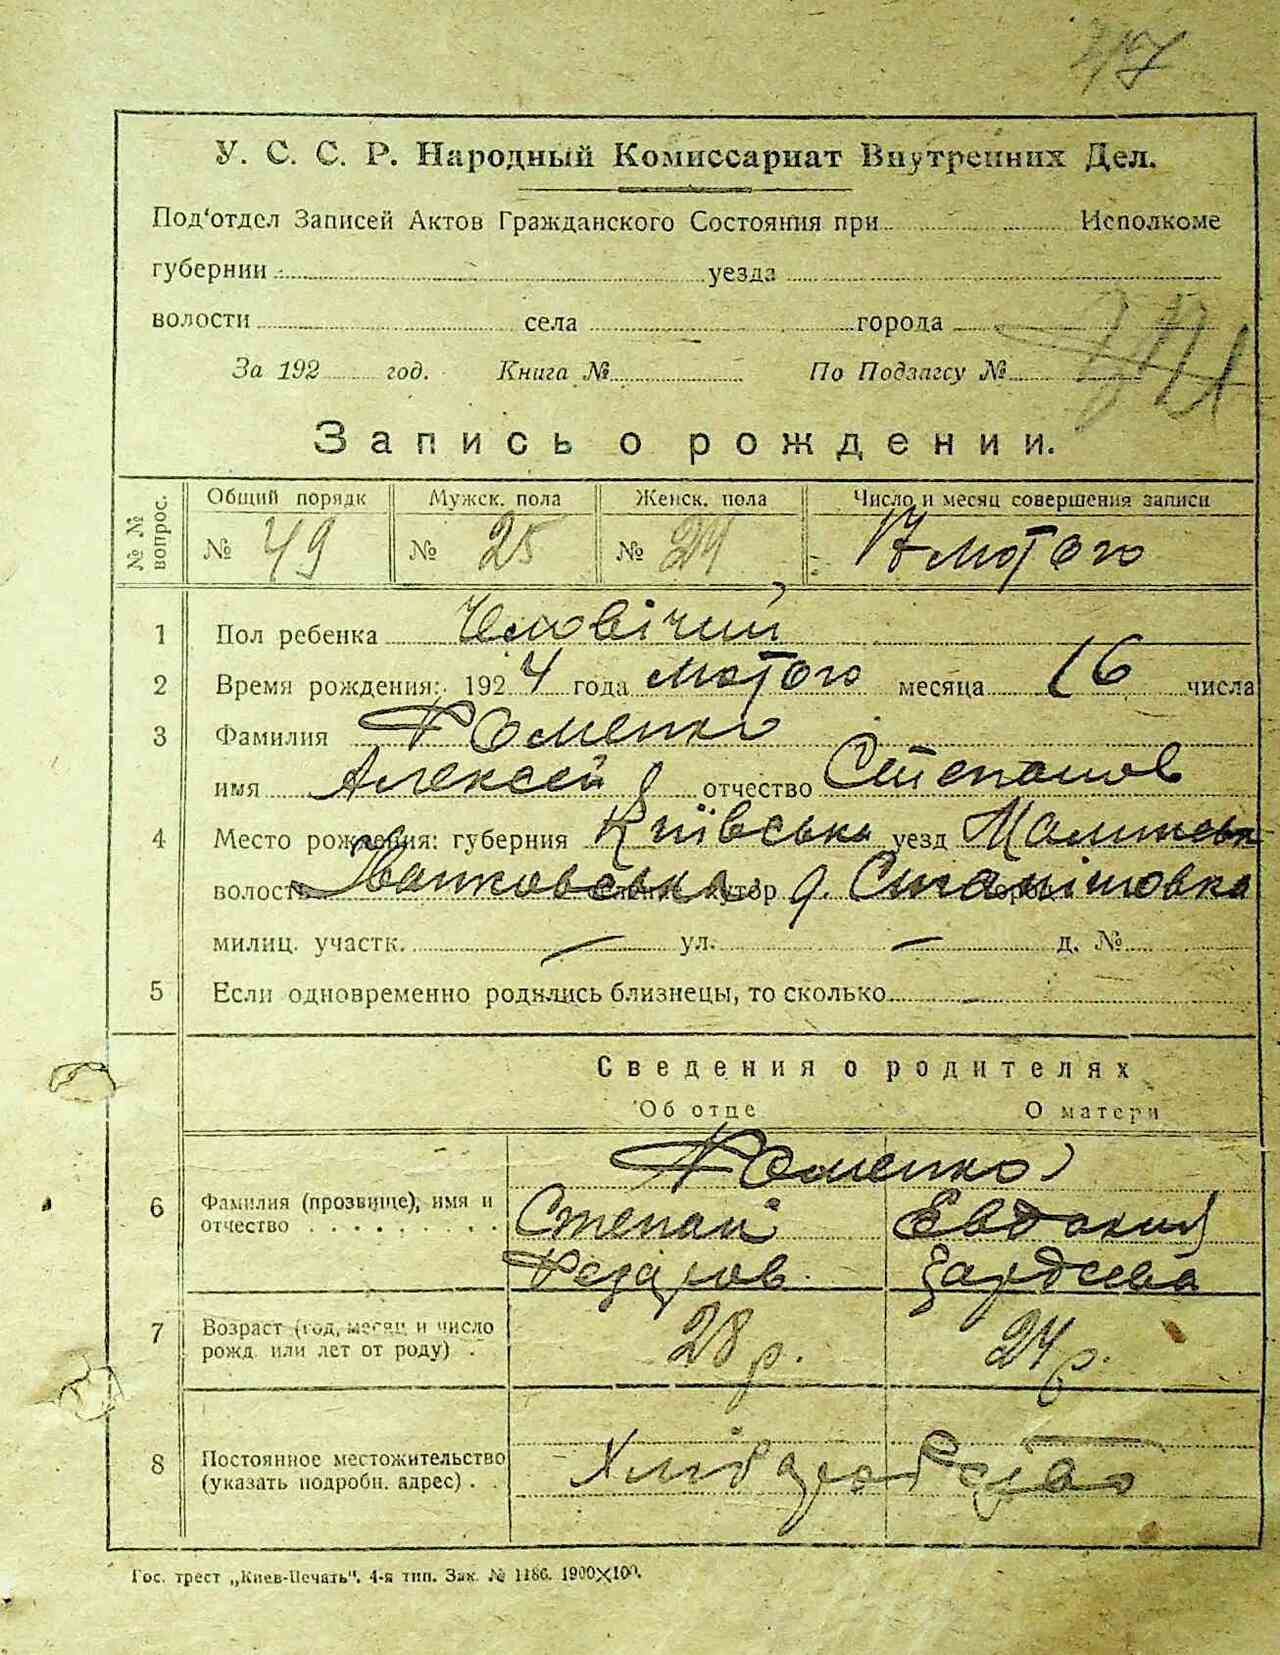 47
У. С. С. Р. Народный Комиссариат Внутренних Дел.
Под‘отдел Записей Актов Гражданского Состояния при Исполкоме
губернии уезда
волости села города
За 192 год. Книга № По Подзагсу №
Запись о рождении.
№ № вопрос. Общий порядк Мужск. пола Женск. пола Число и месяц совершения записи
№ 49 № 25 № 24 17 лютого
1 Пол ребенка Чоловічий
2 Время рождения: 1924 года лютого месяца 16 числа
3 Фамилия Фоменко
имя Алексей отчество Степанов
4 Место рождения: губерния Київська уезд
волость Іванковська хутор д. Станішовка
милиц. участк. — ул. — д. №
5 Если одновременно родились близнецы, то сколько —
Сведения о родителях
Об отце О матери
Фоменко
6 Фамилия (прозвище), имя и Степан Евдокия
отчество . . . . . . . . .
7 Возраст (год, месяц и число 28 р. 24 р.
рожд. или лет от роду) .
8 Постоянное местожительство Хліборобство
(указать подробн. адрес) . .
Гос. трест „Киев-Печать“. 4-я тип. Зак. № 1186. 1900×100.